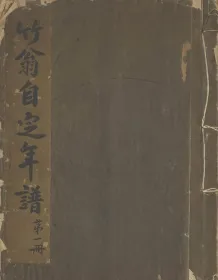 竹翁自定年譜
第一冊